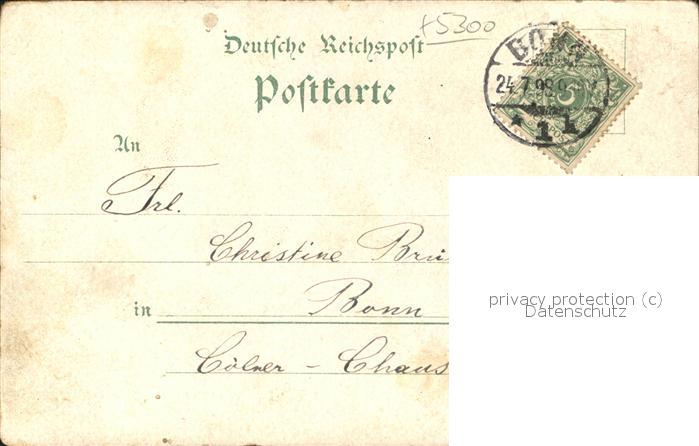 +5300
Deutsche Reichspost
Postkarte
BONN
24.7.99
* 1 1
An
Frl.
Christine Brü
in Bonn
Cölner - Chaus
privacy protection (c)
Datenschutz